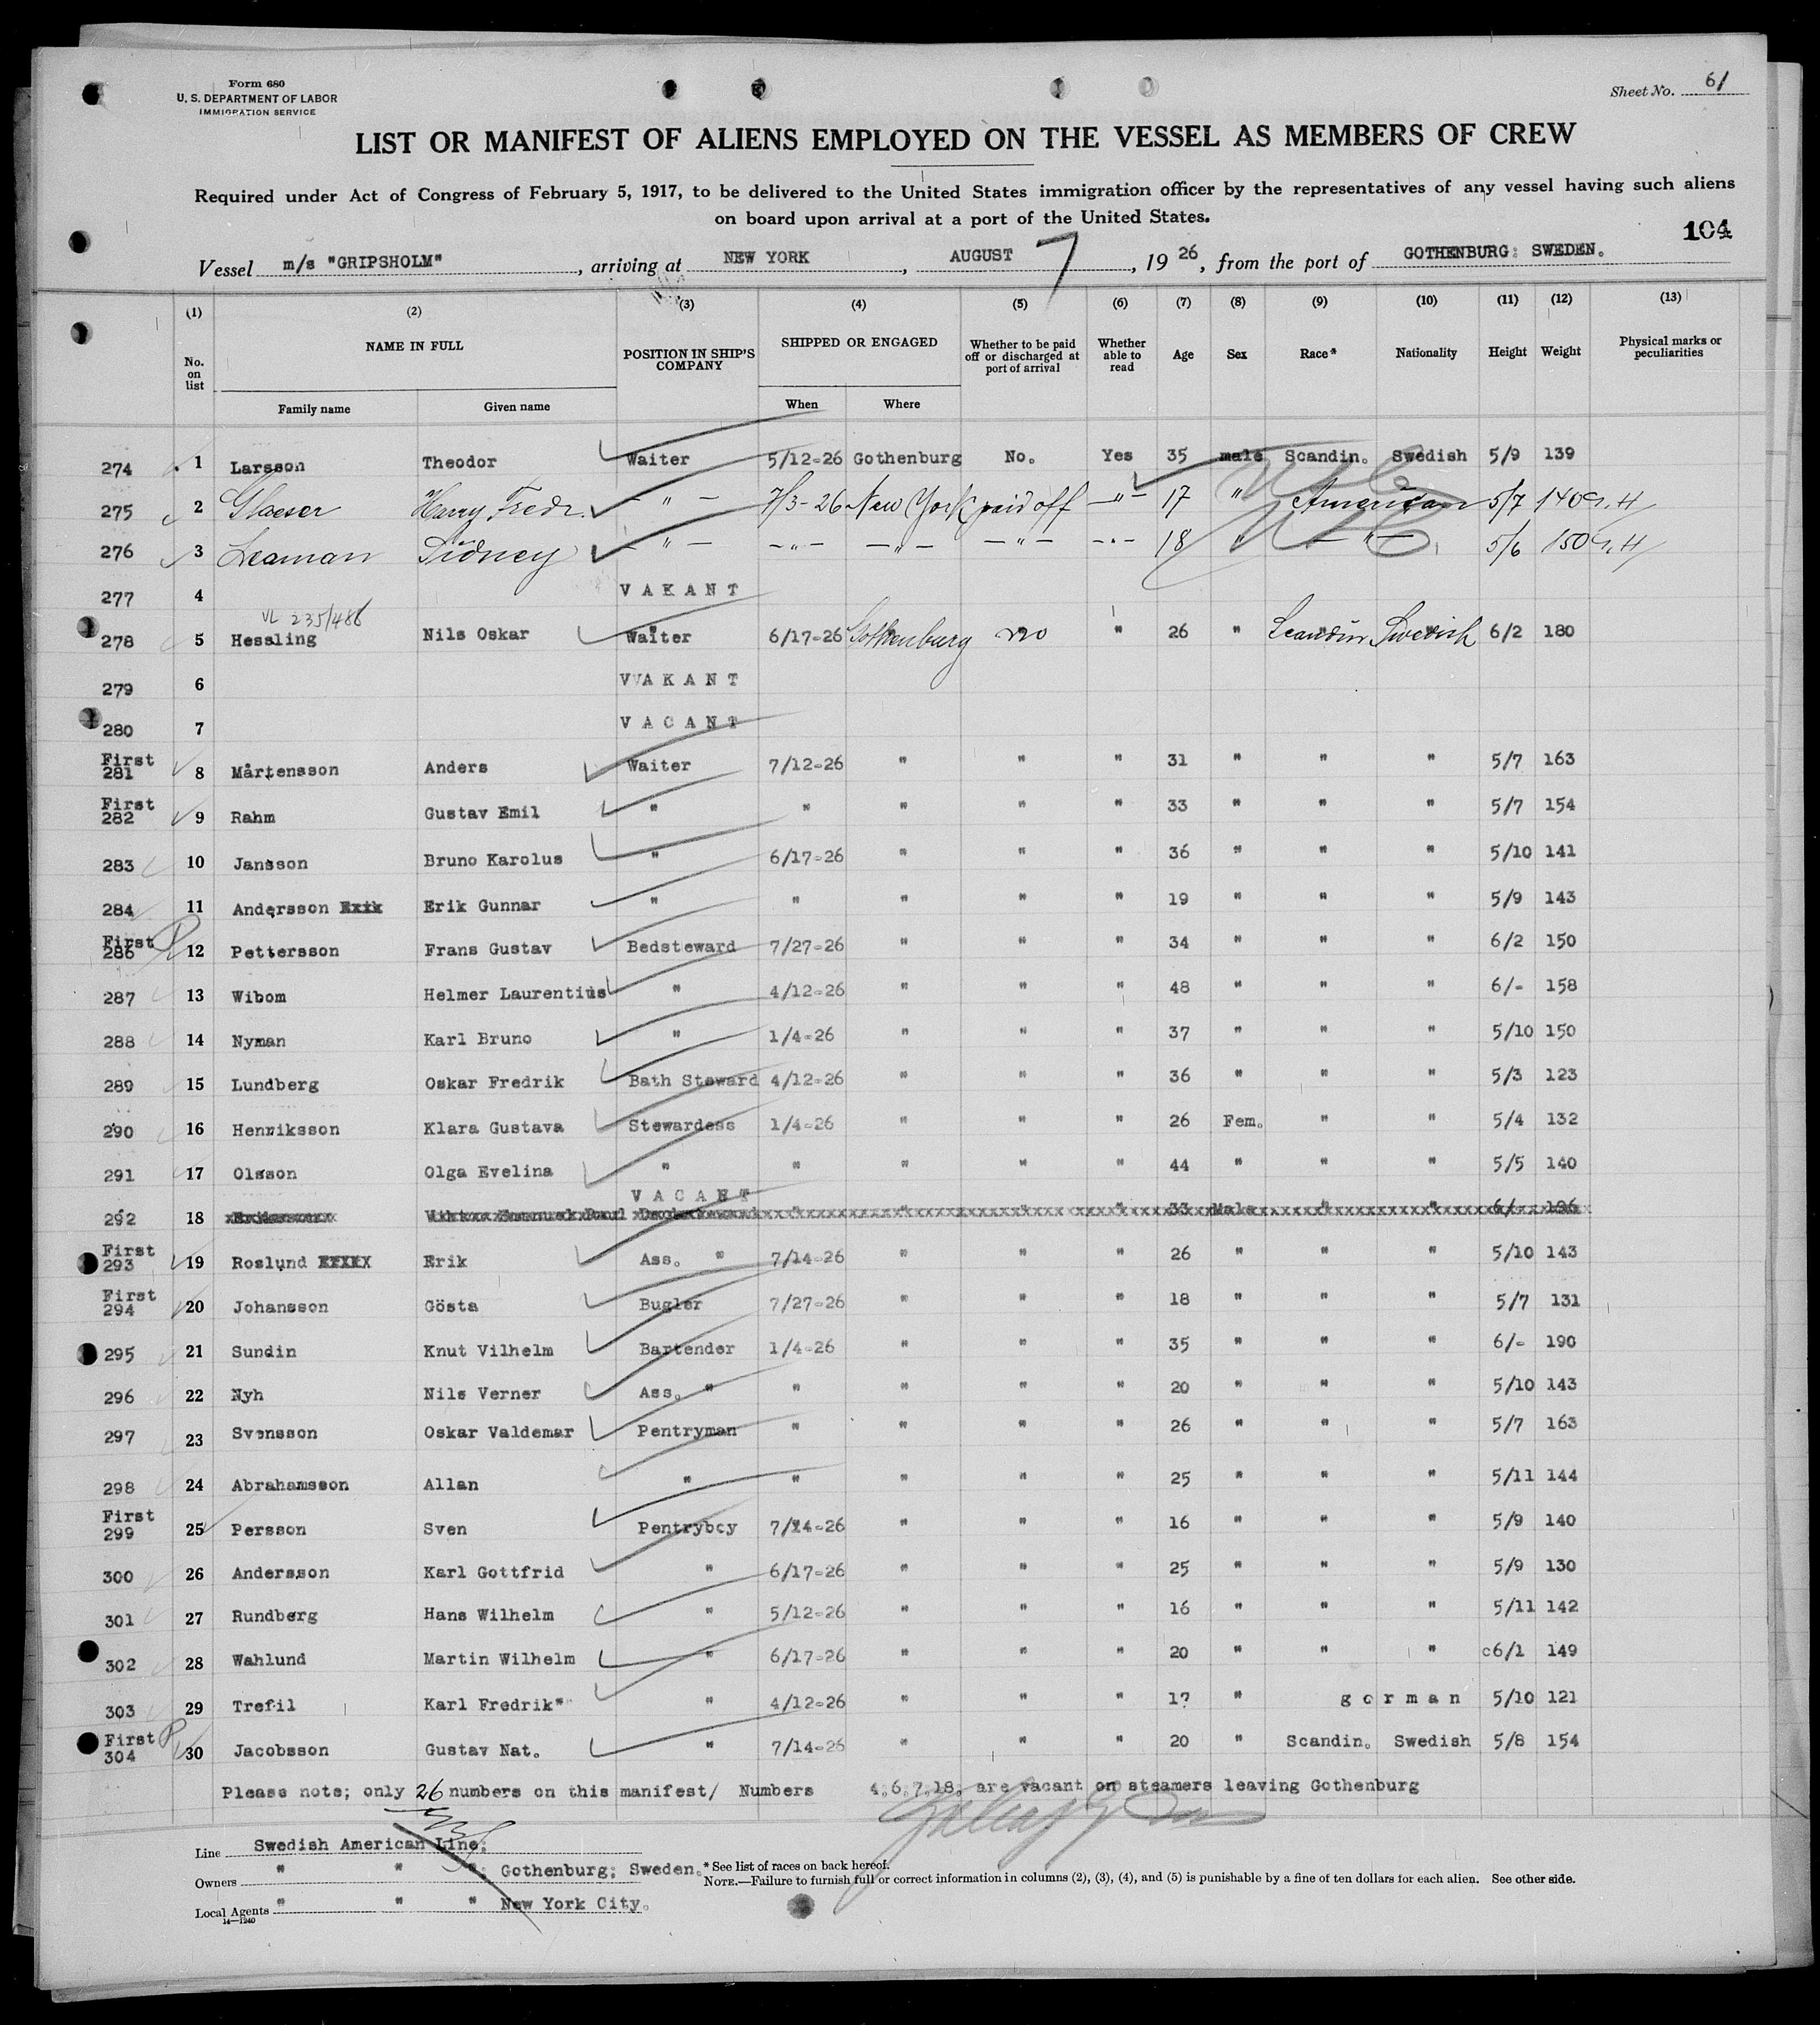 Form 680
U. S. DEPARTMENT OF LABOR
IMMIGRATION SERVICE
Sheet No. 61
LIST OR MANIFEST OF ALIENS EMPLOYED ON THE VESSEL AS MEMBERS OF CREW
Required under Act of Congress of February 5, 1917, to be delivered to the United States immigration officer by the representatives of any vessel having such aliens
on board upon arrival at a port of the United States.
104
Vessel m/s "GRIPSHOLM", arriving at NEW YORK, AUGUST 7, 1926, from the port of GOTHENBURG: SWEDEN.
(1) (2) (3) (4) (5) (6) (7) (8) (9) (10) (11) (12) (13)
No. on list NAME IN FULL POSITION IN SHIP'S COMPANY SHIPPED OR ENGAGED Whether to be paid off or discharged at port of arrival Whether able to read Age Sex Race* Nationality Height Weight Physical marks or peculiarities
Family name Given name When Where
274 1 Larsson Theodor Waiter 5/12-26 Gothenburg No. Yes 35 male Scandin. Swedish 5/9 139
275 2 Glaeser Harry Fredr. - " - 7/3-26 New York paid off - " - 17 " American 5/7 140
276 3 Leaman Sidney - " - - " - - " - - " - - " - 18 " - " - 5/6 150
277 4 VAKANT
VL 235/486
278 5 Hessling Nils Oskar Waiter 6/17-26 Gothenburg no " 26 " Scandin Swedish 6/2 180
279 6 VVAKANT
280 7 VACANT
First
281 8 Mårtensson Anders Waiter 7/12-26 " " " 31 " " " 5/7 163
First
282 9 Rahm Gustav Emil " " " " " 33 " " " 5/7 154
283 10 Jansson Bruno Karolus " 6/17-26 " " " 36 " " " 5/10 141
284 11 Andersson Erik Erik Gunnar " " " " " 19 " " " 5/9 143
First P
286 12 Pettersson Frans Gustav Bedsteward 7/27-26 " " " 34 " " " 6/2 150
287 13 Wibom Helmer Laurentius " 4/12-26 " " " 48 " " " 6/- 158
288 14 Nyman Karl Bruno " 1/4-26 " " " 37 " " " 5/10 150
289 15 Lundberg Oskar Fredrik Bath Steward 4/12-26 " " " 36 " " " 5/3 123
290 16 Henriksson Klara Gustava Stewardess 1/4-26 " " " 26 Fem. " " 5/4 132
291 17 Olsson Olga Evelina " " " " " 44 " " " 5/5 140
VACANT
292 18 " " " 33 Male " " 6/- 196
First
293 19 Roslund Erik Ass. " 7/14-26 " " " 26 " " " 5/10 143
First
294 20 Johansson Gösta Bugler 7/27-26 " " " 18 " " " 5/7 131
295 21 Sundin Knut Vilhelm Bartender 1/4-26 " " " 35 " " " 6/- 190
296 22 Nyh Nils Verner Ass. " " " " " 20 " " " 5/10 143
297 23 Svensson Oskar Valdemar Pentryman " " " " 26 " " " 5/7 163
298 24 Abrahamsson Allan " " " " " 25 " " " 5/11 144
First
299 25 Persson Sven Pentryboy 7/14-26 " " " 16 " " " 5/9 140
300 26 Andersson Karl Gottfrid " 6/17-26 " " " 25 " " " 5/9 130
301 27 Rundberg Hans Wilhelm " 5/12-26 " " " 16 " " " 5/11 142
302 28 Wahlund Martin Wilhelm " 6/17-26 " " " 20 " " " 6/1 149
303 29 Trefil Karl Fredrik " 4/12-26 " " " 17 " german 5/10 121
First P
304 30 Jacobsson Gustav Nat. " 7/14-26 " " " 20 " Scandin. Swedish 5/8 154
Please note; only 26 numbers on this manifest/ Numbers 4;6;7;18; are vacant on steamers leaving Gothenburg
Line Swedish American Line;
Owners " " "; Gothenburg; Sweden.
* See list of races on back hereof.
NOTE.—Failure to furnish full or correct information in columns (2), (3), (4), and (5) is punishable by a fine of ten dollars for each alien. See other side.
Local Agents " " " New York City.
14—1240